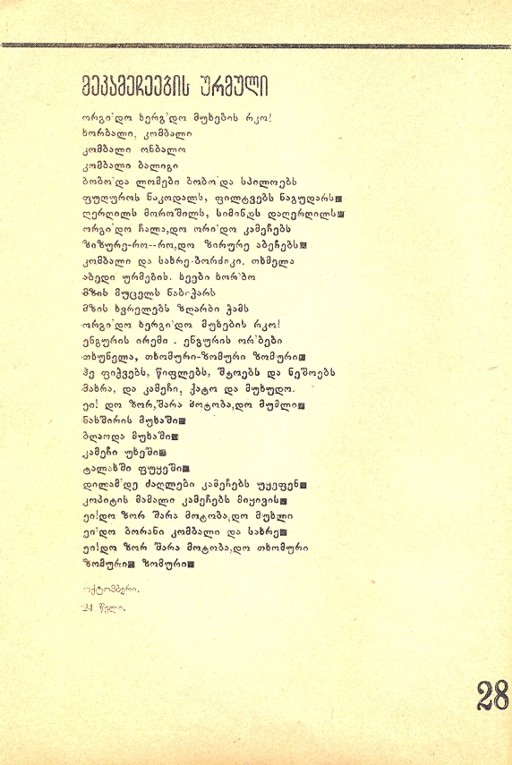 მეკამეჩეების ურმული
ორგი'დო ხერგ'დო მუხების რკო!
ხორბალი, კომბალი
კომბალი ონბალო
კომბალი ბალიგი
ბობო'და ლომები ბობო'და სპილოებს
ფუღუროს ნაკოდალს, ფილტვებს ნაგუდარს■
ღერღილს მოროშილს, სიმინდს დაღერღილს■
ორგი'დო ჩალა,დო ორი'დო კამეჩებს
ზიზურე-რო--რო,დო ზირურე აბეჩებს■
კომბალი და სახრე-ბორძიკი, თხმელა
აბედი ურმების. ხეები ხორ'ბო
მზის მუცელს
მზის ხვრელებს ზღარბი ჭამს
ორგი'დო ხერგი'დო მუხების რკო!
ენგურის ირემი . ენგურის ორ'ბები
თხუნელა, თხომური-ზომური ზომური■
ჰე ფიჭვებს, წიფლებს, შტოებს და ნეშოებს
მახრა, და კამეჩი, ქატო და მუხუდო.
ეი! დო ზორ,შარა მოტობა,დო მუმლი■
ნახშირის მუხაში■
ბღაოდა მუხაში■
კამეჩი უხეში■
ტალახში ფუყეში■
დილამ'დე ძაღლები კამეჩებს უყეფენ■
კოპიტის მამალი კამეჩებს მიყივის■
ეი!დო ზორ შარა მოტობა,დო მუხლი
ეი'დო ბორანი კომბალი და სახრე■
ეი!დო ზორ შარა მოტობა,დო თხომური
ზომური■ ზომური■
ოქტომბერი.
24 წელი.
28